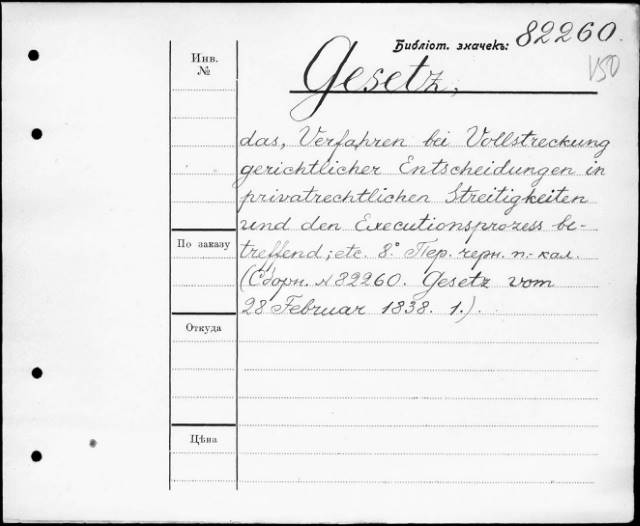 Библіот. значекъ: 82260.
150
Инв.
№
Gesetz,
das, Verfahren bei Vollstreckung
gerichtlicher Entscheidungen in
privatrechtlichen Streitigkeiten
und den Executionsprozess be-
treffend; etc. 8° Пер. черн. п.-кал.
(Сборн. № 82260. Gesetz vom
28 Februar 1838. 1.).
По заказу
Откуда
Цѣна